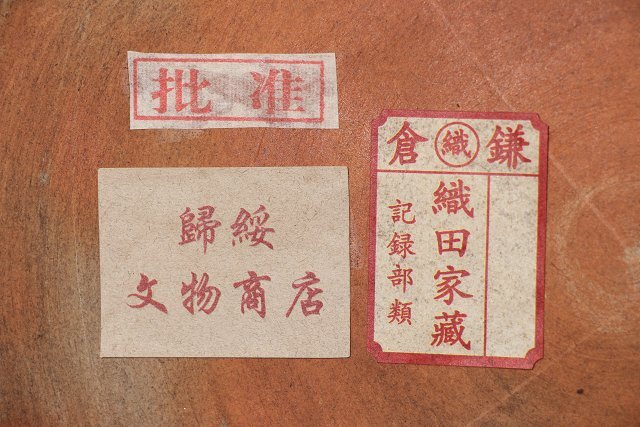 批准
歸綏
文物商店
鎌㊢倉
織田家藏
記録部類